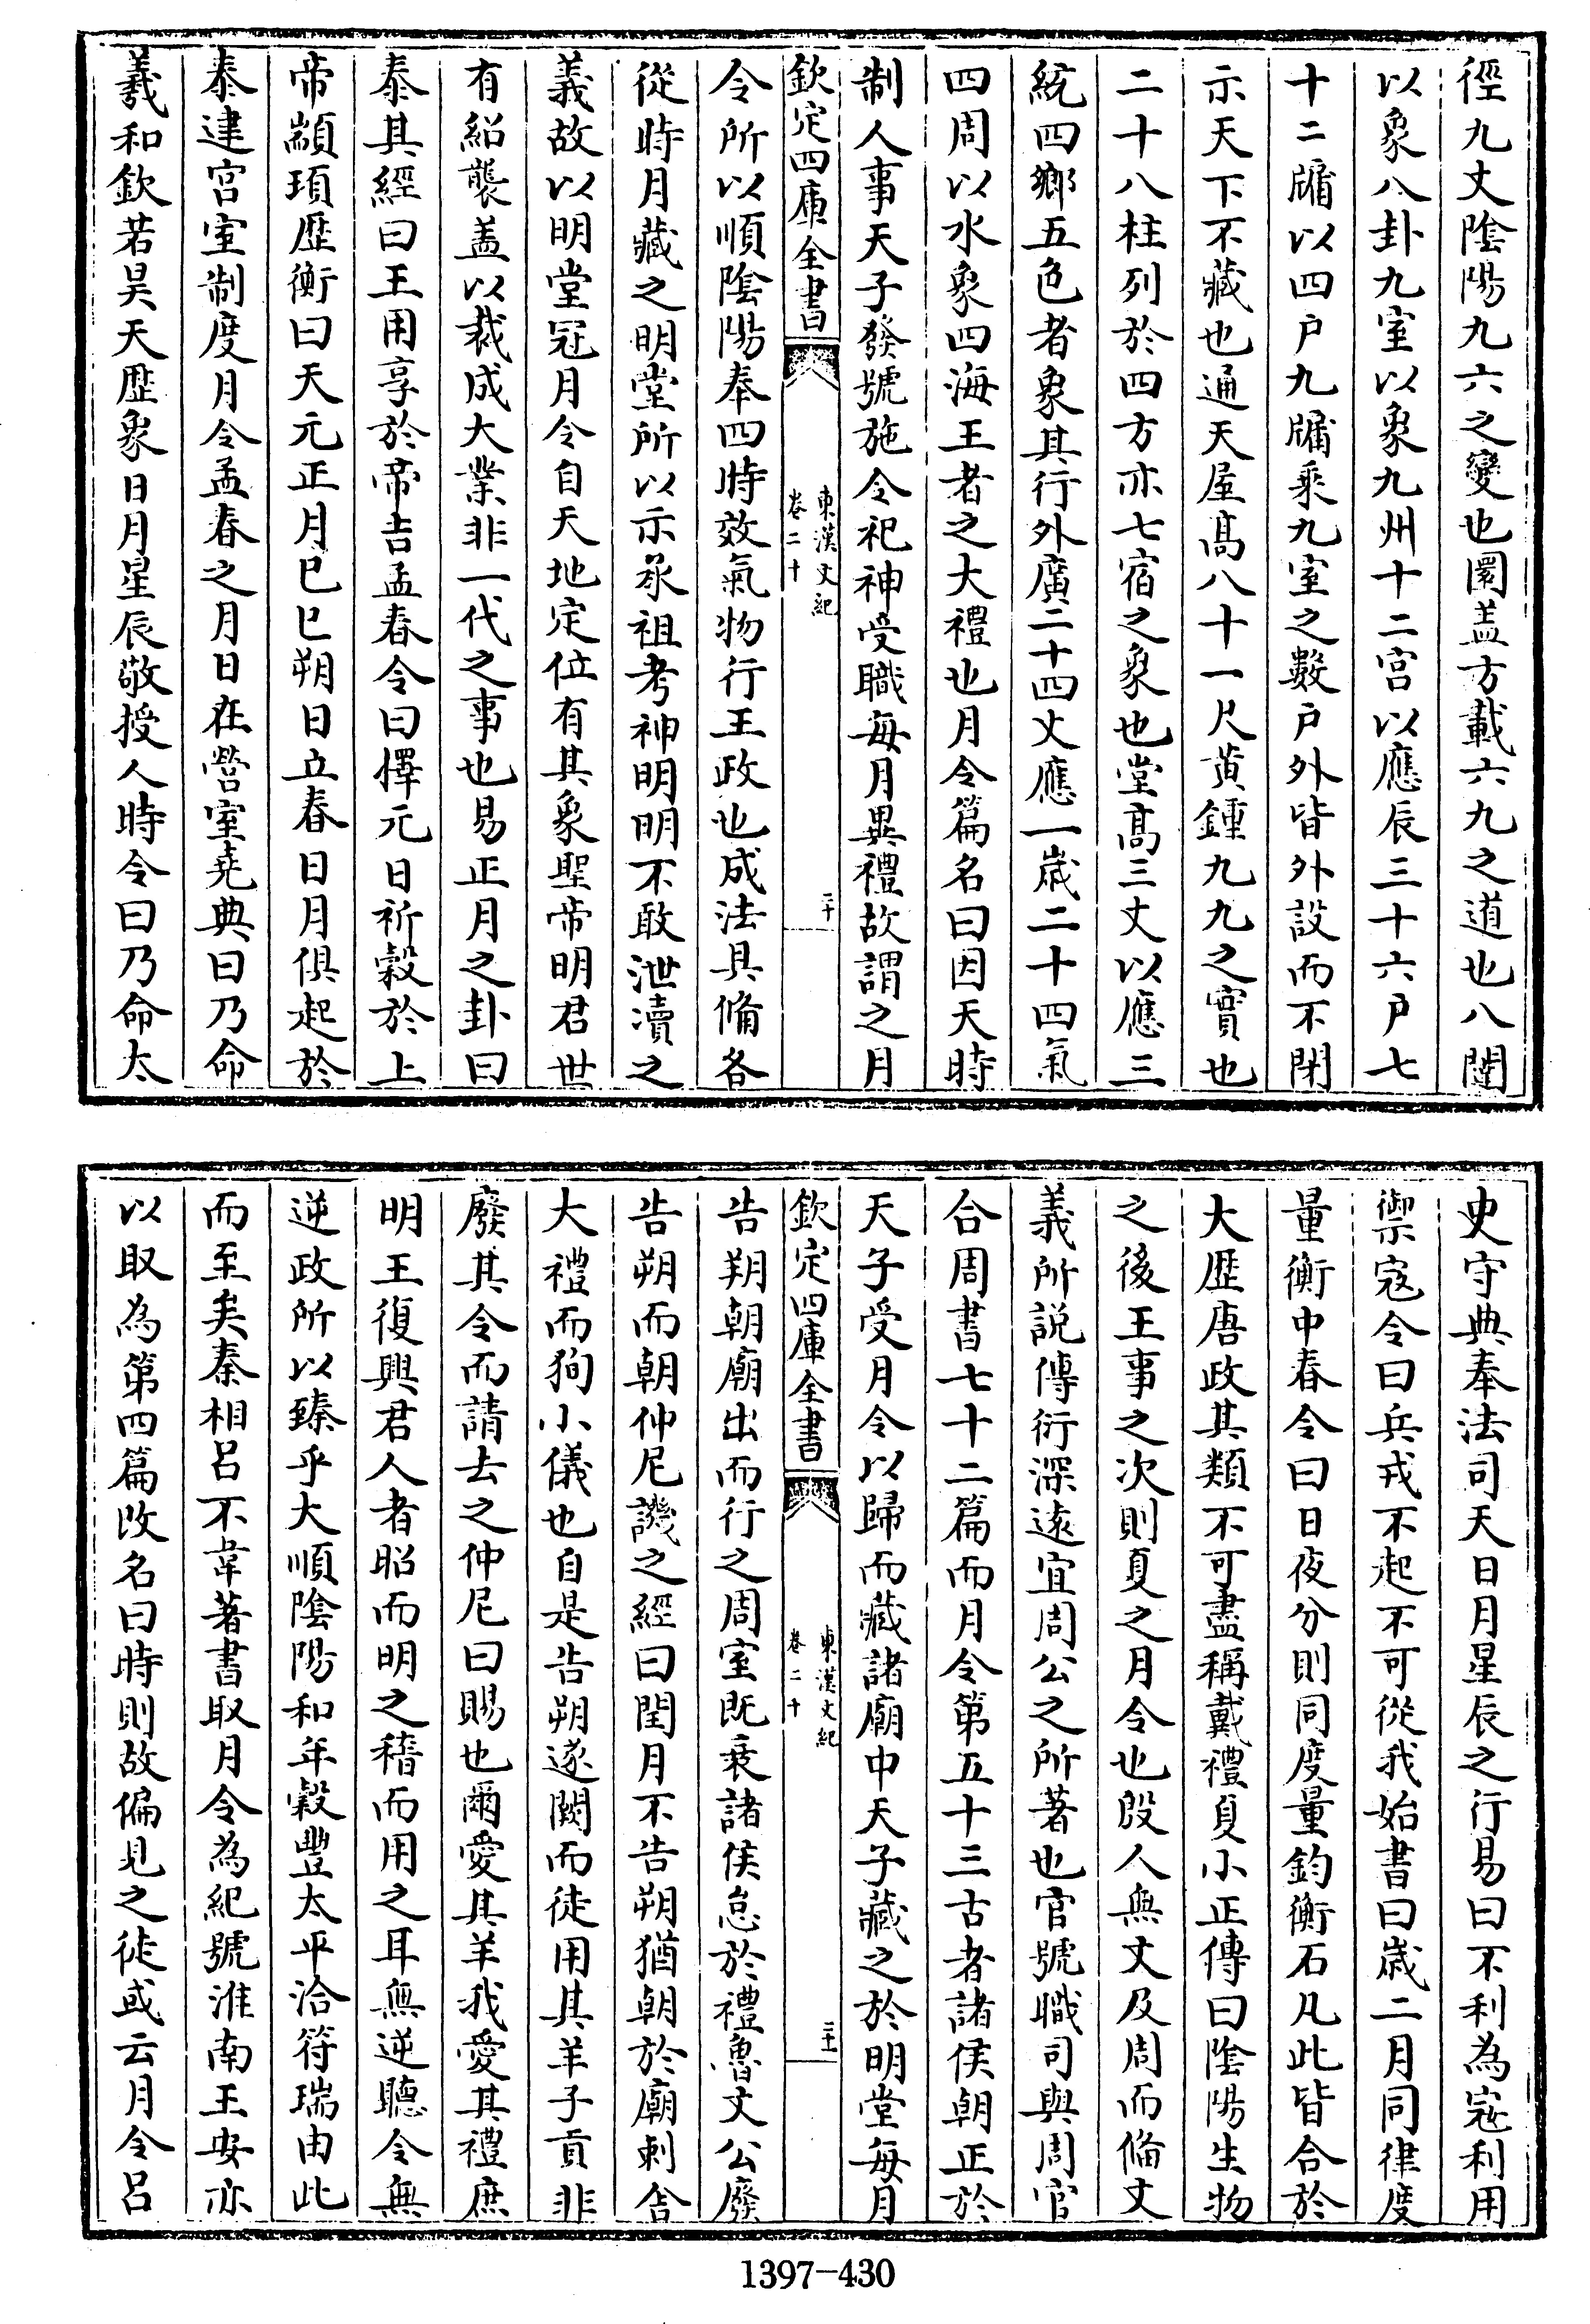 徑九丈陰陽九六之變也圜蓋方載六九之道也八闥
以象八卦九室以象九州十二宫以應辰三十六户七
十二牖以四户九牖乘九室之數户外皆外設而不閉
示天下不藏也通天屋髙八十一尺黄鍾九九之實也
二十八柱列於四方亦七宿之象也堂髙三丈以應三
統四鄉五色者象其行外廣二十四丈應一歲二十四氣
四周以水象四海王者之大禮也月令篇名曰因天時
制人事天子發號施令祀神受職每月異禮故謂之月
欽定四庫全書
東漢文紀
卷二十
二十
令所以順陰陽奉四時效氣物行王政也成法具備各
從時月藏之明堂所以示承祖考神明明不敢泄瀆之
義故以明堂冠月令自天地定位有其象聖帝明君世
有紹襲蓋以裁成大業非一代之事也易正月之卦曰
泰其經曰王用享於帝吉孟春令曰擇元日祈穀於上
帝顓頊歷衡曰天元正月已巳朔日立春日月俱起於
泰建宫室制度月令孟春之月日在營室堯典曰乃命
羲和欽若昊天歷象日月星辰敬授人時令曰乃命太
史守典奉法司天日月星辰之行易曰不利為寇利用
禦寇令曰兵戎不起不可從我始書曰歲二月同律度
量衡中春令曰日夜分則同度量鈞衡石凡此皆合於
大歷唐政其類不可盡稱戴禮夏小正傳曰陰陽生物
之後王事之次則夏之月令也殷人無文及周而備文
義所説傳衍深逺宜周公之所著也官號職司與周官
合周書七十二篇而月令第五十三古者諸侯朝正於
天子受月令以歸而藏諸廟中天子藏之於明堂每月
欽定四庫全書
東漢文紀
卷二十
二十一
告朔朝廟出而行之周室既衰諸侯怠於禮魯文公廢
告朔而朝仲尼譏之經曰閏月不告朔猶朝於廟刺舍
大禮而狥小儀也自是告朔遂闕而徒用其羊子貢非
廢其令而請去之仲尼曰賜也爾愛其羊我愛其禮庶
明王復興君人者昭而明之稽而用之耳無逆聽令無
逆政所以臻乎大順陰陽和年穀豐太平洽符瑞由此
而至矣秦相吕不韋著書取月令為紀號淮南王安亦
以取為第四篇改名曰時則故偏見之徒或云月令吕
1397-430